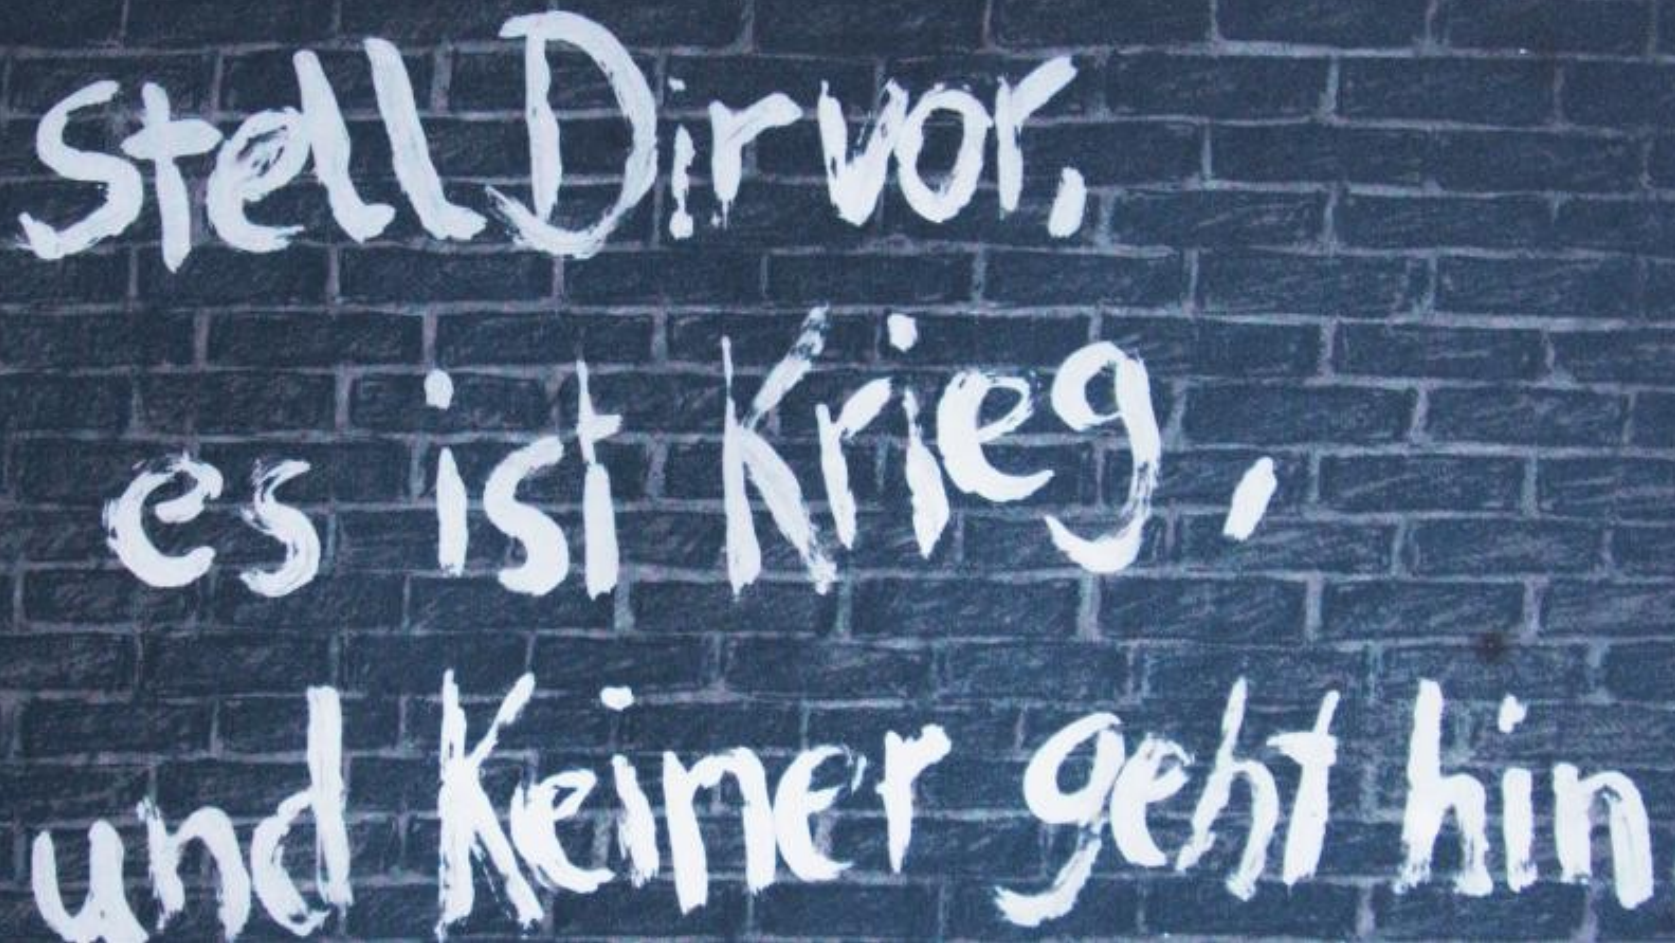 Stell Dir vor,
es ist Krieg,
und Keiner geht hin